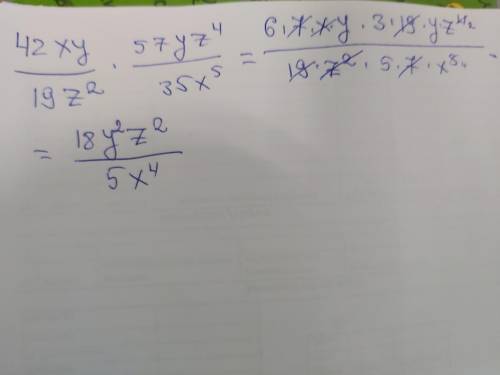 42xy/19z² · 57yz⁴/35x⁵ = 6·7·x·y·3·19·y·z⁴/19·z²·5·7·x⁵ =
= 18y²z²/5x⁴